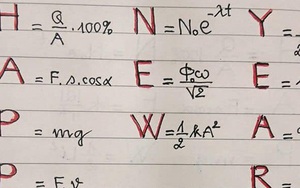 H = Q/A · 100% N = N₀e^-λt Y =
A = F.s.cosα E = Φ₀ω/√2 E =
P = mg W = 1/2 kA² A =
P = F.v R